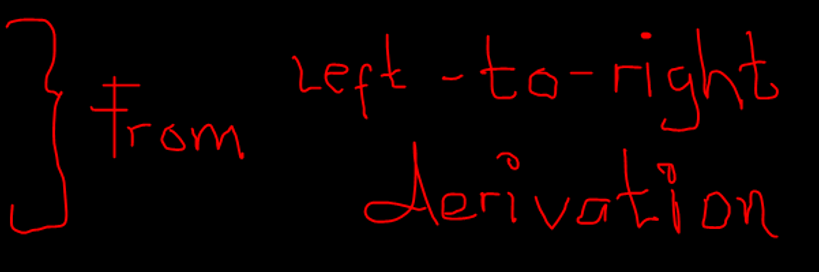 } from left-to-right
derivation